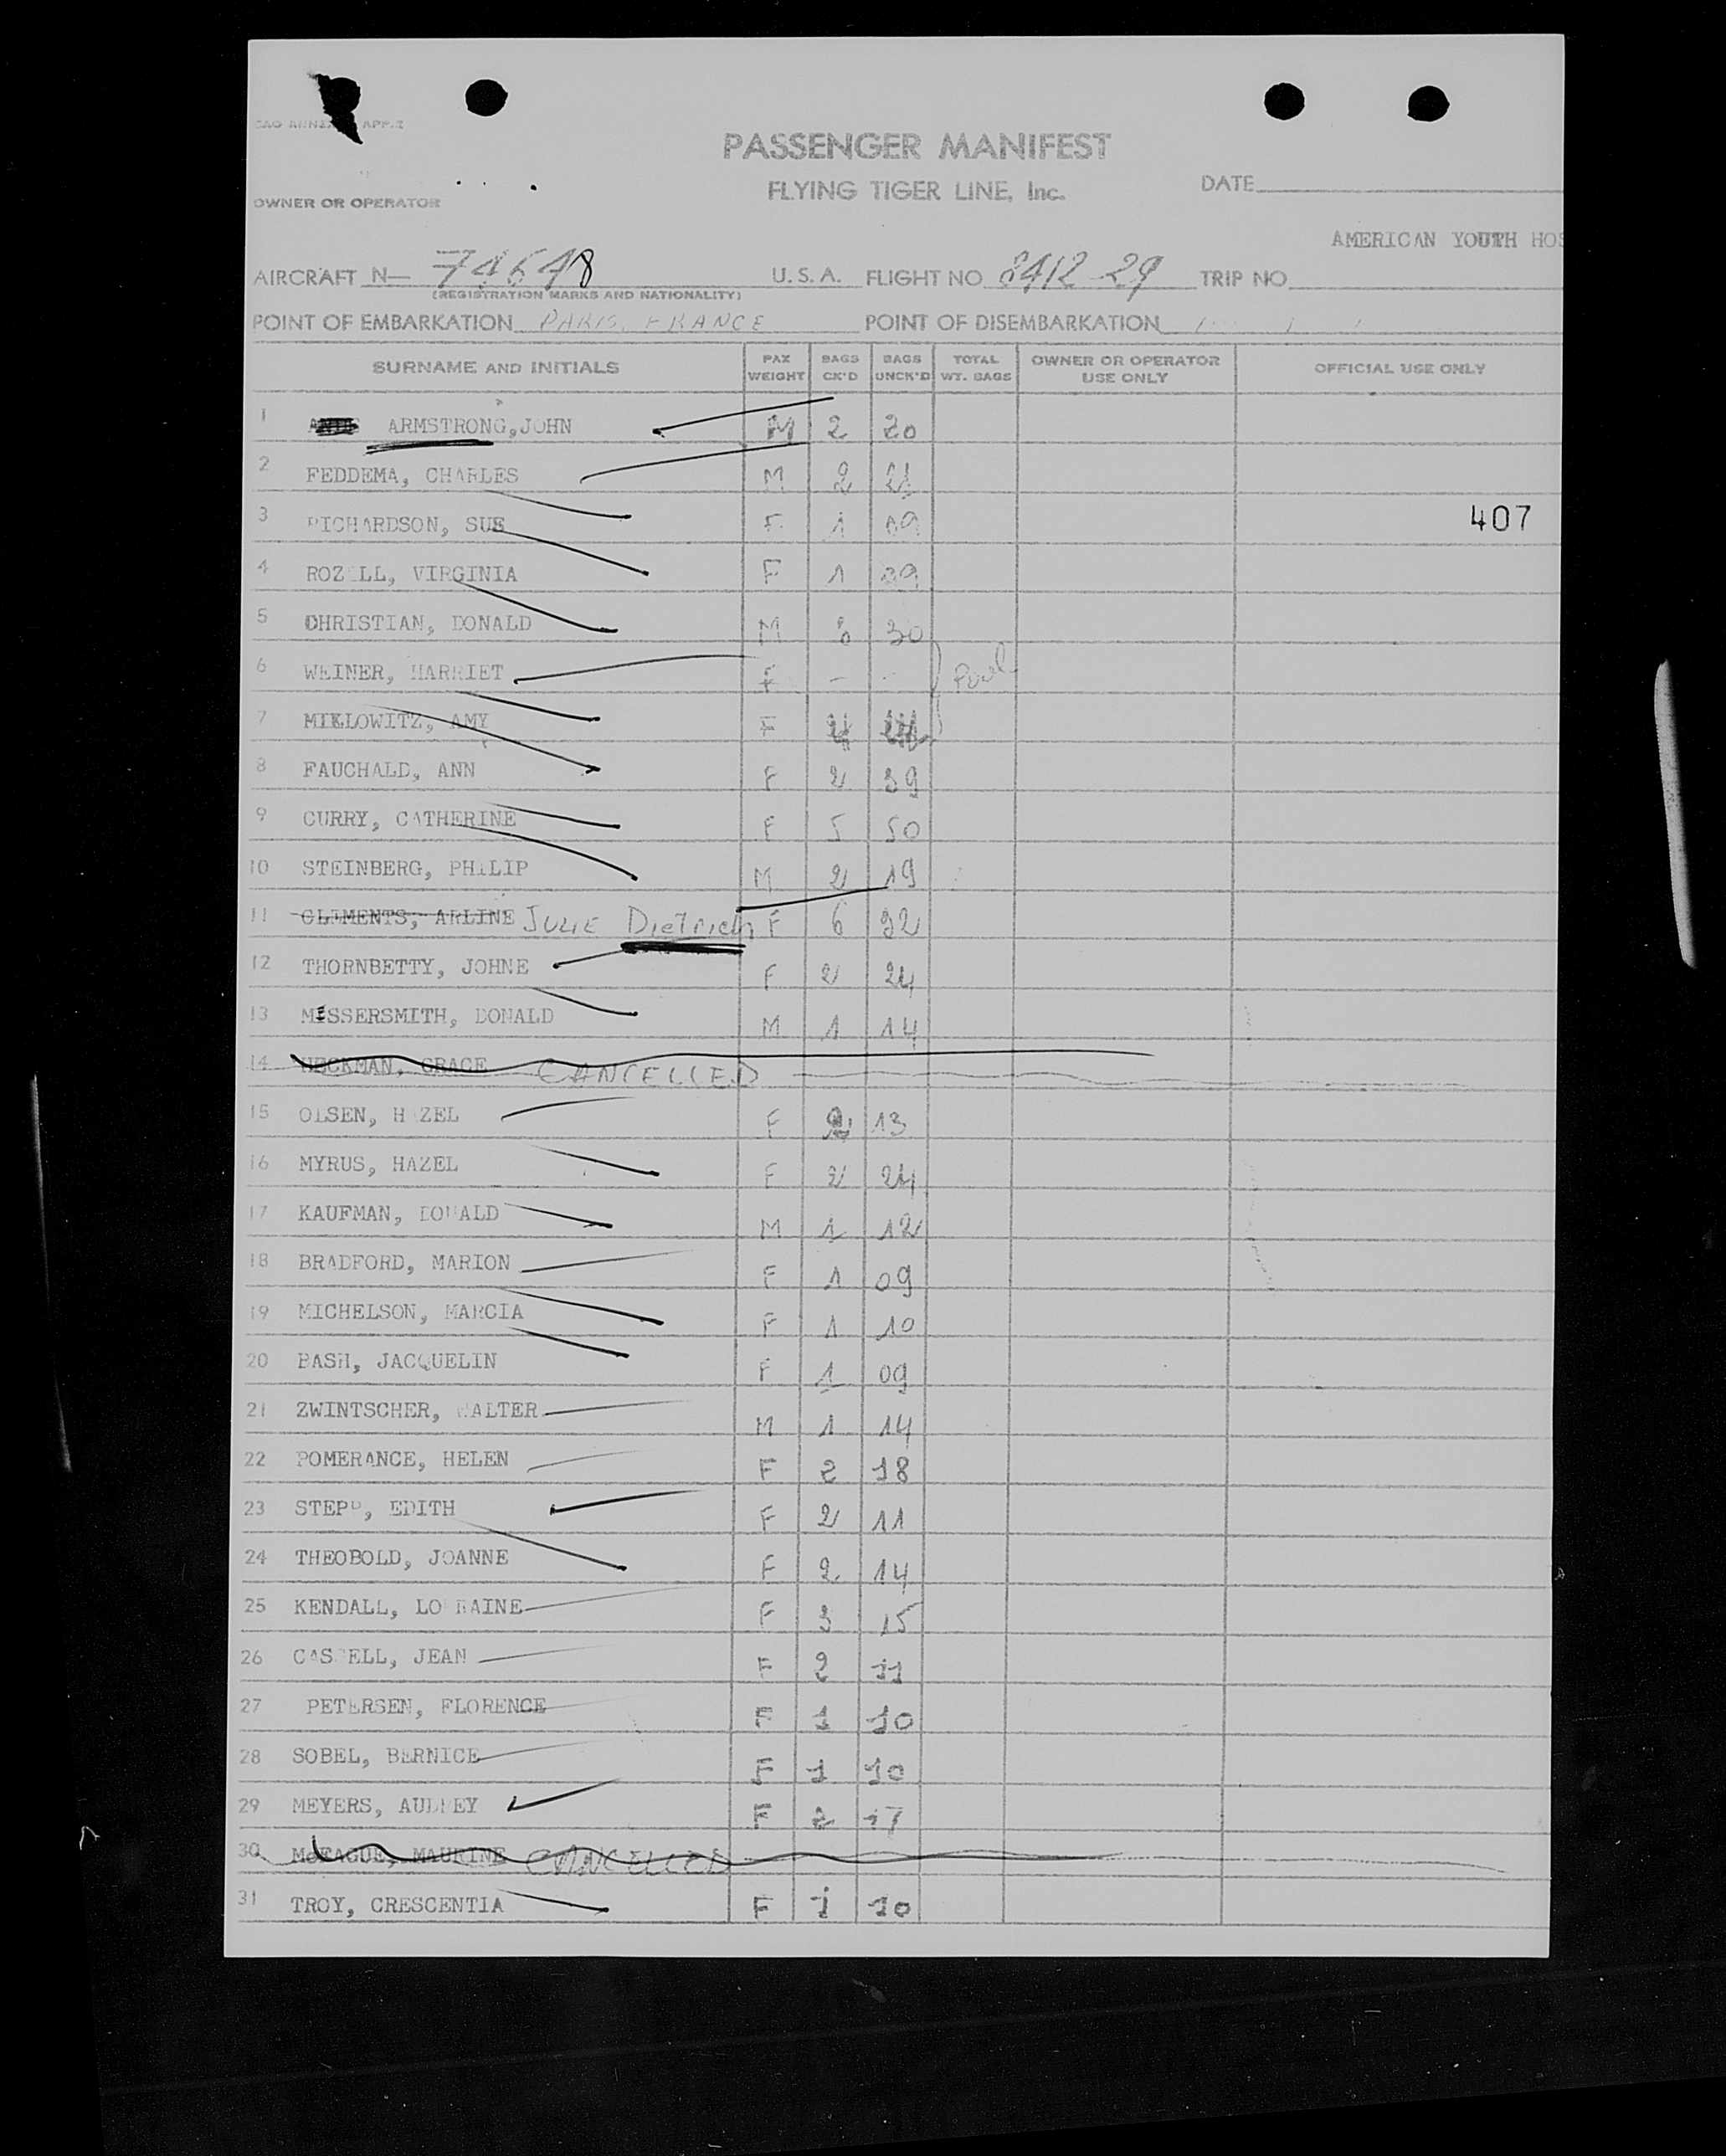 PASSENGER MANIFEST
FLYING TIGER LINE, Inc.
DATE
OWNER OR OPERATOR
AMERICAN YOUTH HOS
AIRCRAFT N— 74648 U.S.A. FLIGHT NO. 8412-29 TRIP NO.
(REGISTRATION MARKS AND NATIONALITY)
POINT OF EMBARKATION PARIS, FRANCE POINT OF DISEMBARKATION
SURNAME AND INITIALS PAX WEIGHT BAGS CK'D BAGS UNCK'D TOTAL WT. BAGS OWNER OR OPERATOR USE ONLY OFFICIAL USE ONLY
1 ARMSTRONG,JOHN M 2 20
2 FEDDEMA, CHARLES M 2 21
3 RICHARDSON, SUE F 1 09 407
4 ROZELL, VIRGINIA F 1 09
5 CHRISTIAN, DONALD M 3 30
6 WEINER, HARRIET F - - Pool
7 MIKLOWITZ, AMY F
8 FAUCHALD, ANN F 2 39
9 CURRY, CATHERINE F 5 50
10 STEINBERG, PHILIP M 2 19
11 CLEMENTS, ARLINE JULIE Dietrich F 6 92
12 THORNBETTY, JOHNE F 2 24
13 MESSERSMITH, DONALD M 1 14
14 HECKMAN, GRACE CANCELLED
15 OLSEN, HAZEL F 2 13
16 MYRUS, HAZEL F 2 24
17 KAUFMAN, DONALD M 1 12
18 BRADFORD, MARION F 1 09
19 MICHELSON, MARCIA F 1 10
20 BASH, JACQUELIN F 1 09
21 ZWINTSCHER, WALTER M 1 14
22 POMERANCE, HELEN F 2 18
23 STEPP, EDITH F 2 11
24 THEOBOLD, JOANNE F 2 14
25 KENDALL, LORRAINE F 3 15
26 CASSELL, JEAN F 2 11
27 PETERSEN, FLORENCE F 1 10
28 SOBEL, BERNICE F 1 10
29 MEYERS, AUDREY F 2 17
30 MCTAGUE, MAURINE CANCELLED
31 TROY, CRESCENTIA F 1 10